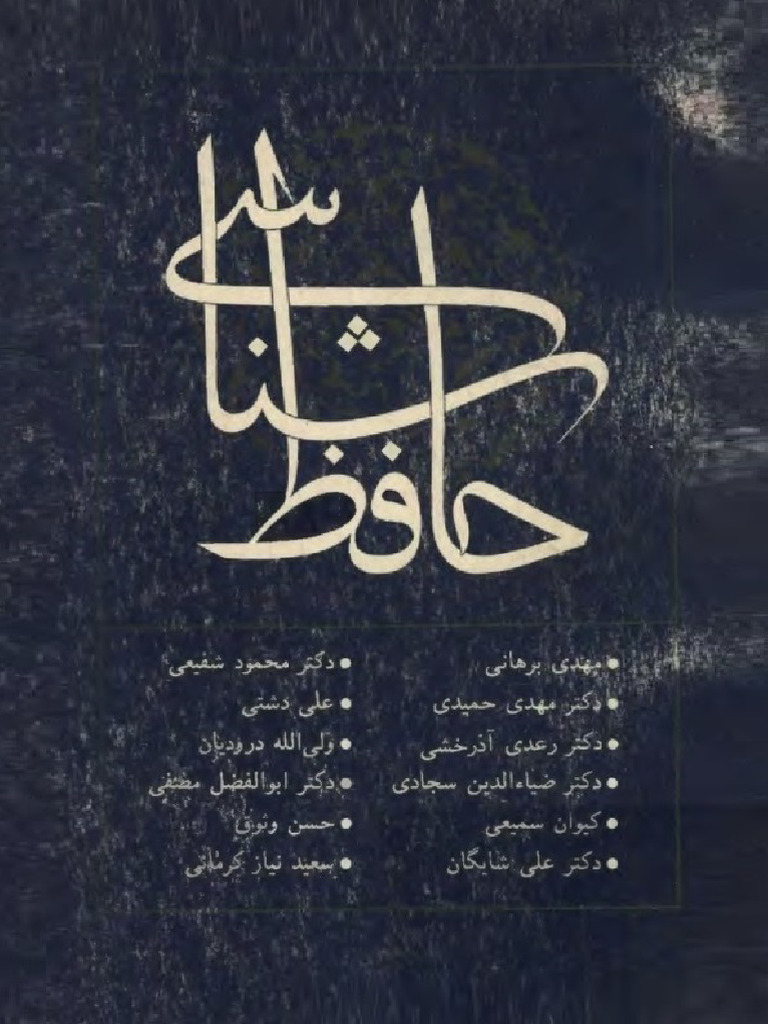 حافظ شناسی
● مهدی برهانی
● دکتر مهدی حمیدی
● دکتر رعدی آذرخشی
● دکتر ضیاءالدین سجادی
● کیوان سمیعی
● دکتر علی شایگان
● دکتر محمود شفیعی
● علی دشتی
● ولی‌الله درودیان
● دکتر ابوالفضل مصفی
● حسن وثوق
● سعید نیاز کرمانی